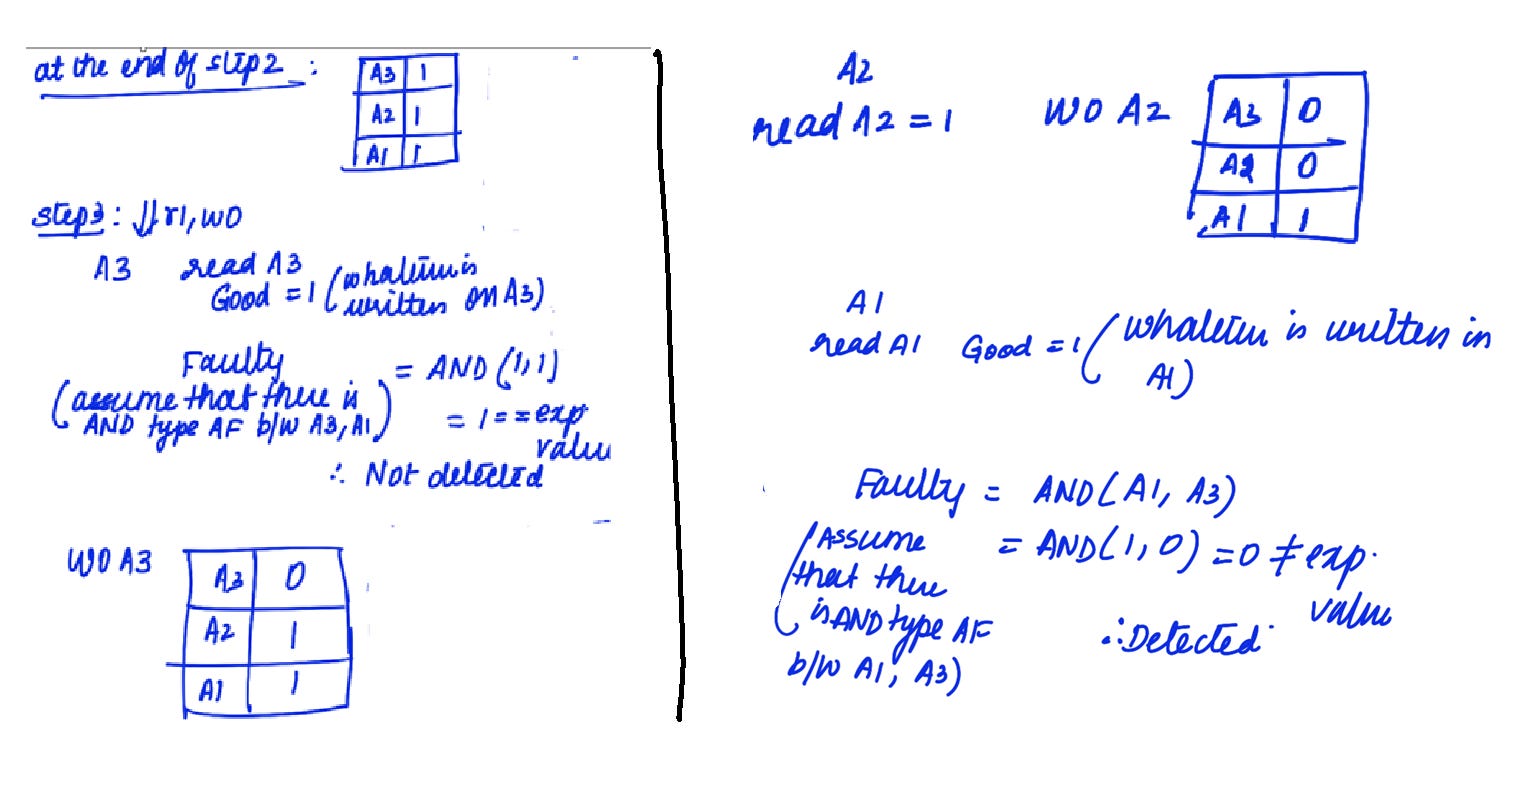 at the end of step2 :
A3 1
A2 1
A1 1
step3 : ⇓ r1, w0
A3 read A3
Good = 1 (whatever is
written on A3)
Faulty = AND (1,1)
(assume that there is
AND type AF b/w A3, A1) = 1 == exp
value
∴ Not detected
W0 A3
A3 0
A2 1
A1 1
A2
read A2 = 1 W0 A2
A3 0
A2 0
A1 1
A1
read A1 Good = 1 (whatever is written in
A1)
Faulty = AND(A1, A3)
(Assume = AND(1, 0) = 0 ≠ exp.
that there value
is AND type AF ∴ Detected
b/w A1, A3)